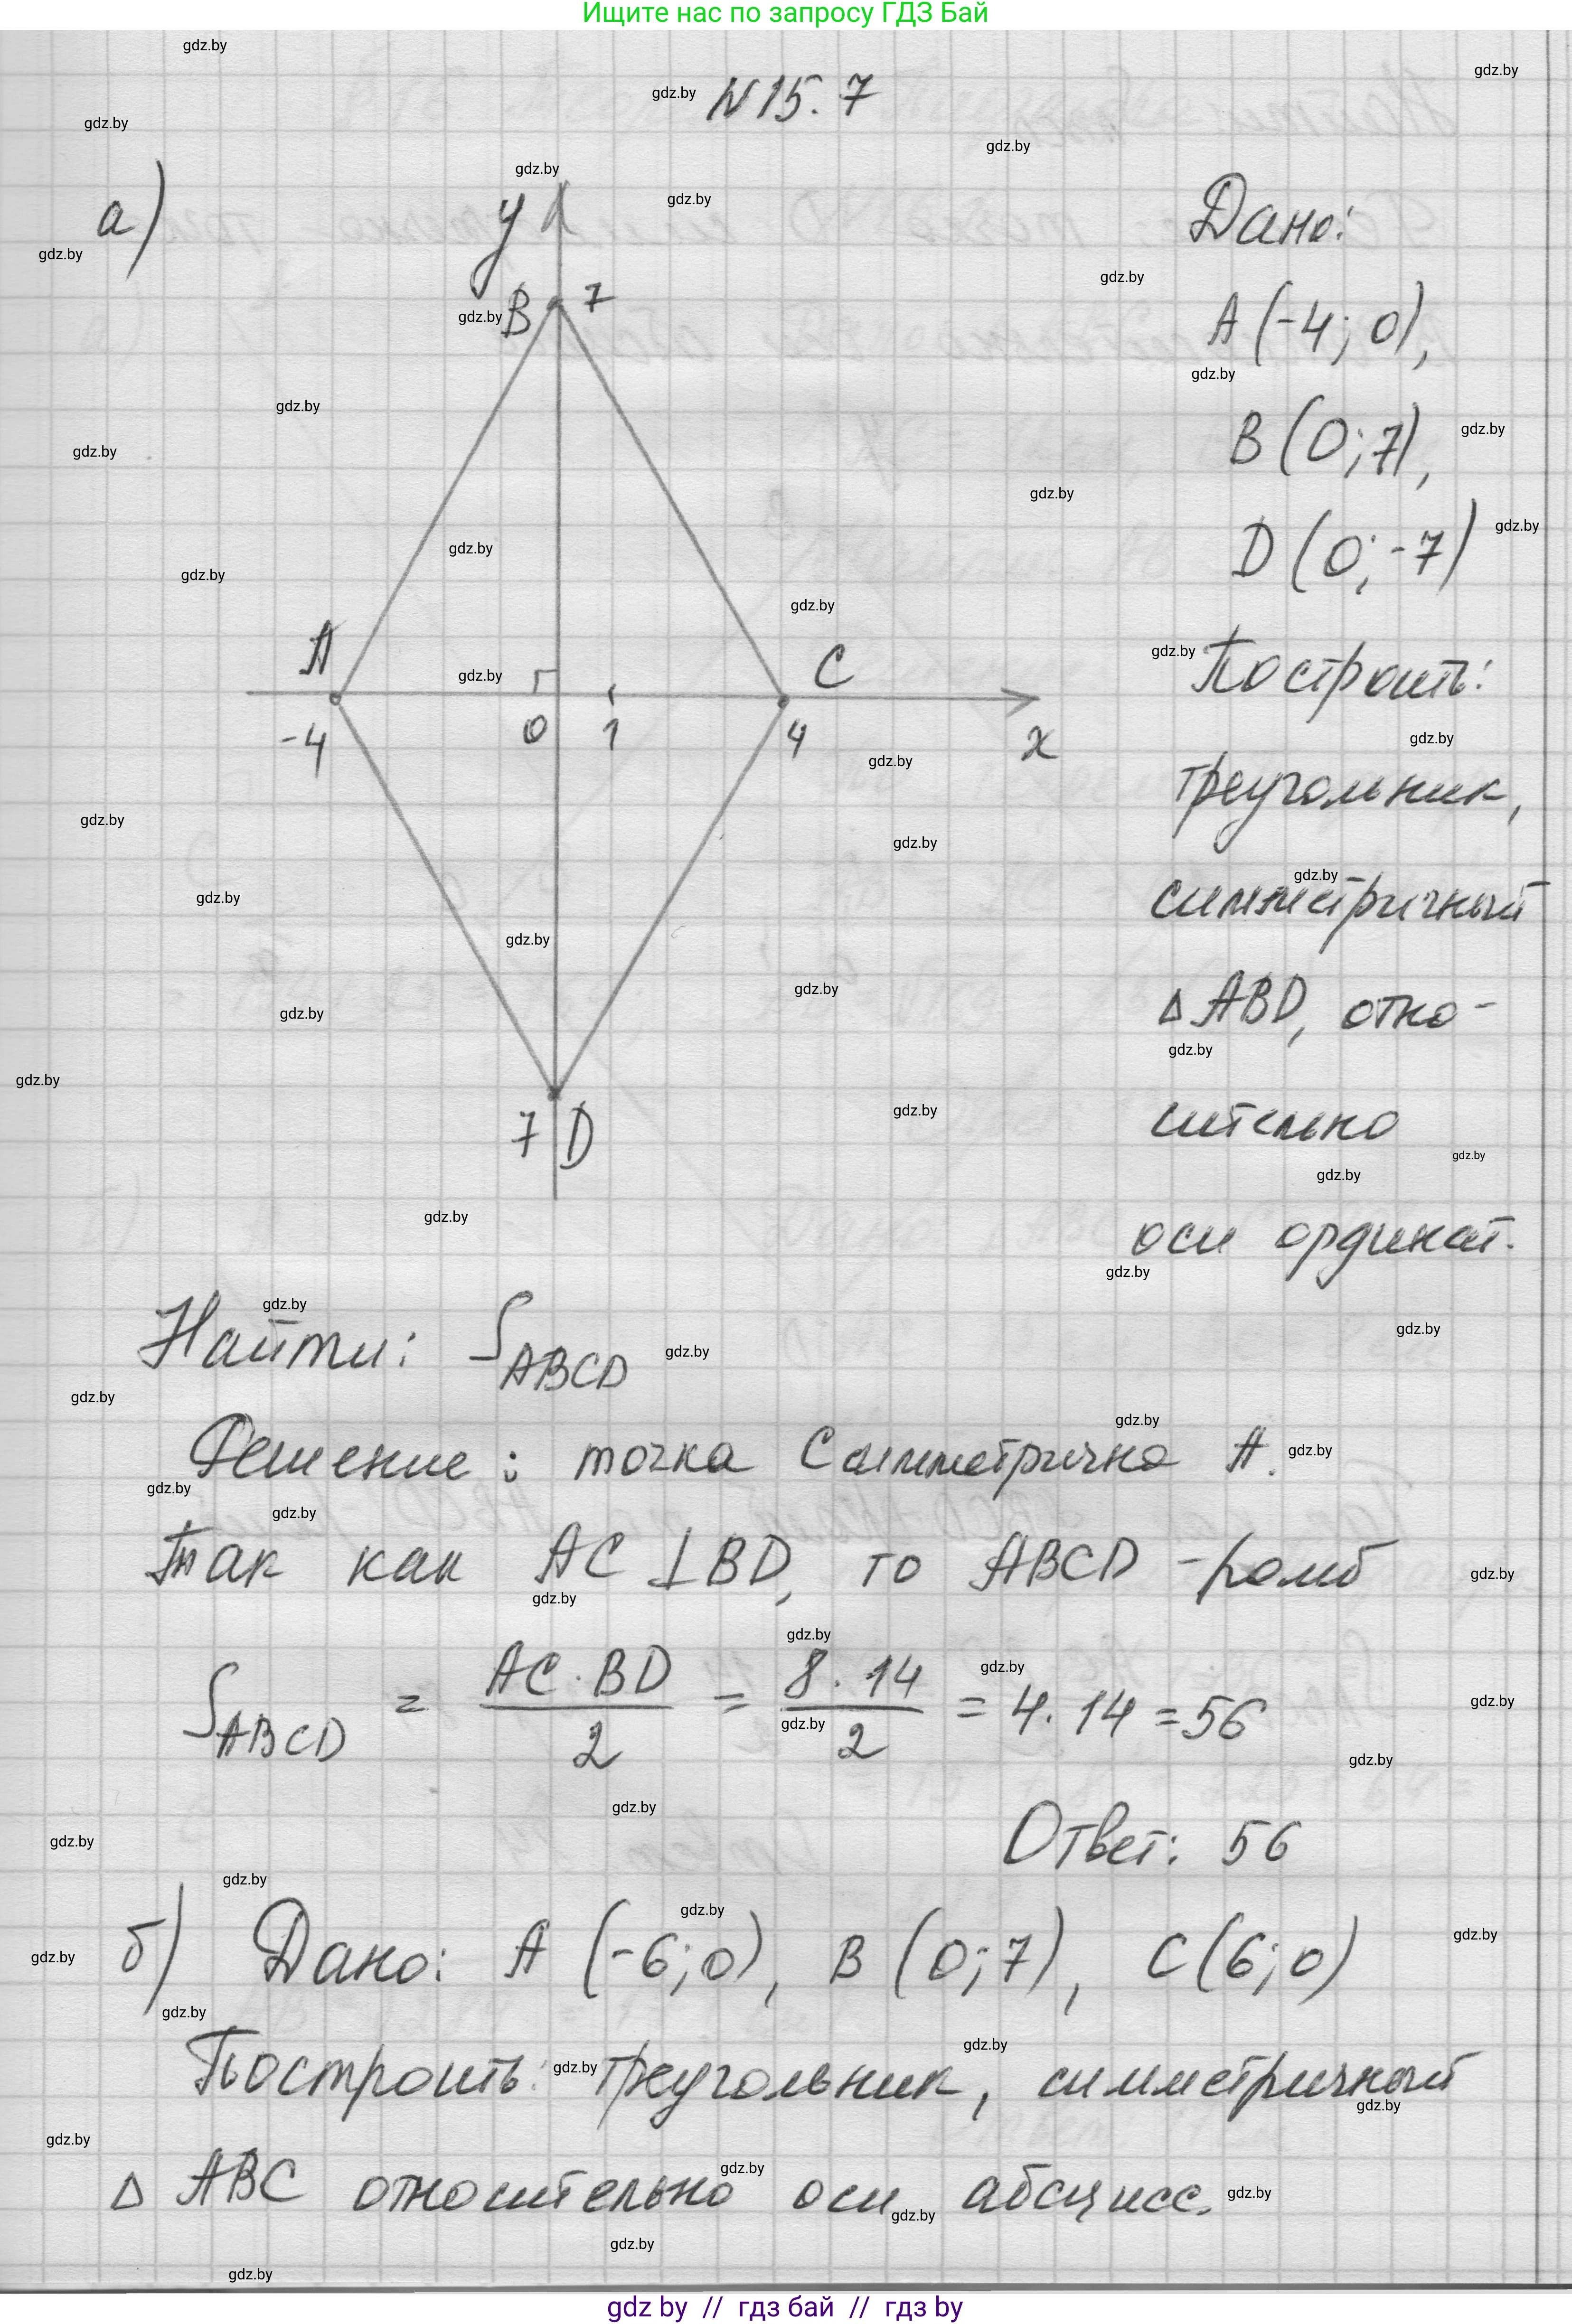 Ищите нас по запросу ГДЗ Бай
N 15. 7
а)
Дано:
y
B 7
A (-4; 0),
B (0; 7),
D (0; -7)
A
C
Построить:
-4
0
1
4
x
треугольник,
симметричный
Δ ABD, отно-
7 D
сительно
оси ординат.
Найти: S ABCD
Решение: точка C симметрична A.
Так как AC ⊥ BD, то ABCD - ромб
S ABCD = AC · BD / 2 = 8 · 14 / 2 = 4 · 14 = 56
Ответ: 56
б) Дано: A (-6; 0), B (0; 7), C (6; 0)
Построить: треугольник, симметричный
Δ ABC относительно оси абсцисс.
gdz by // гдз бай // гдз by